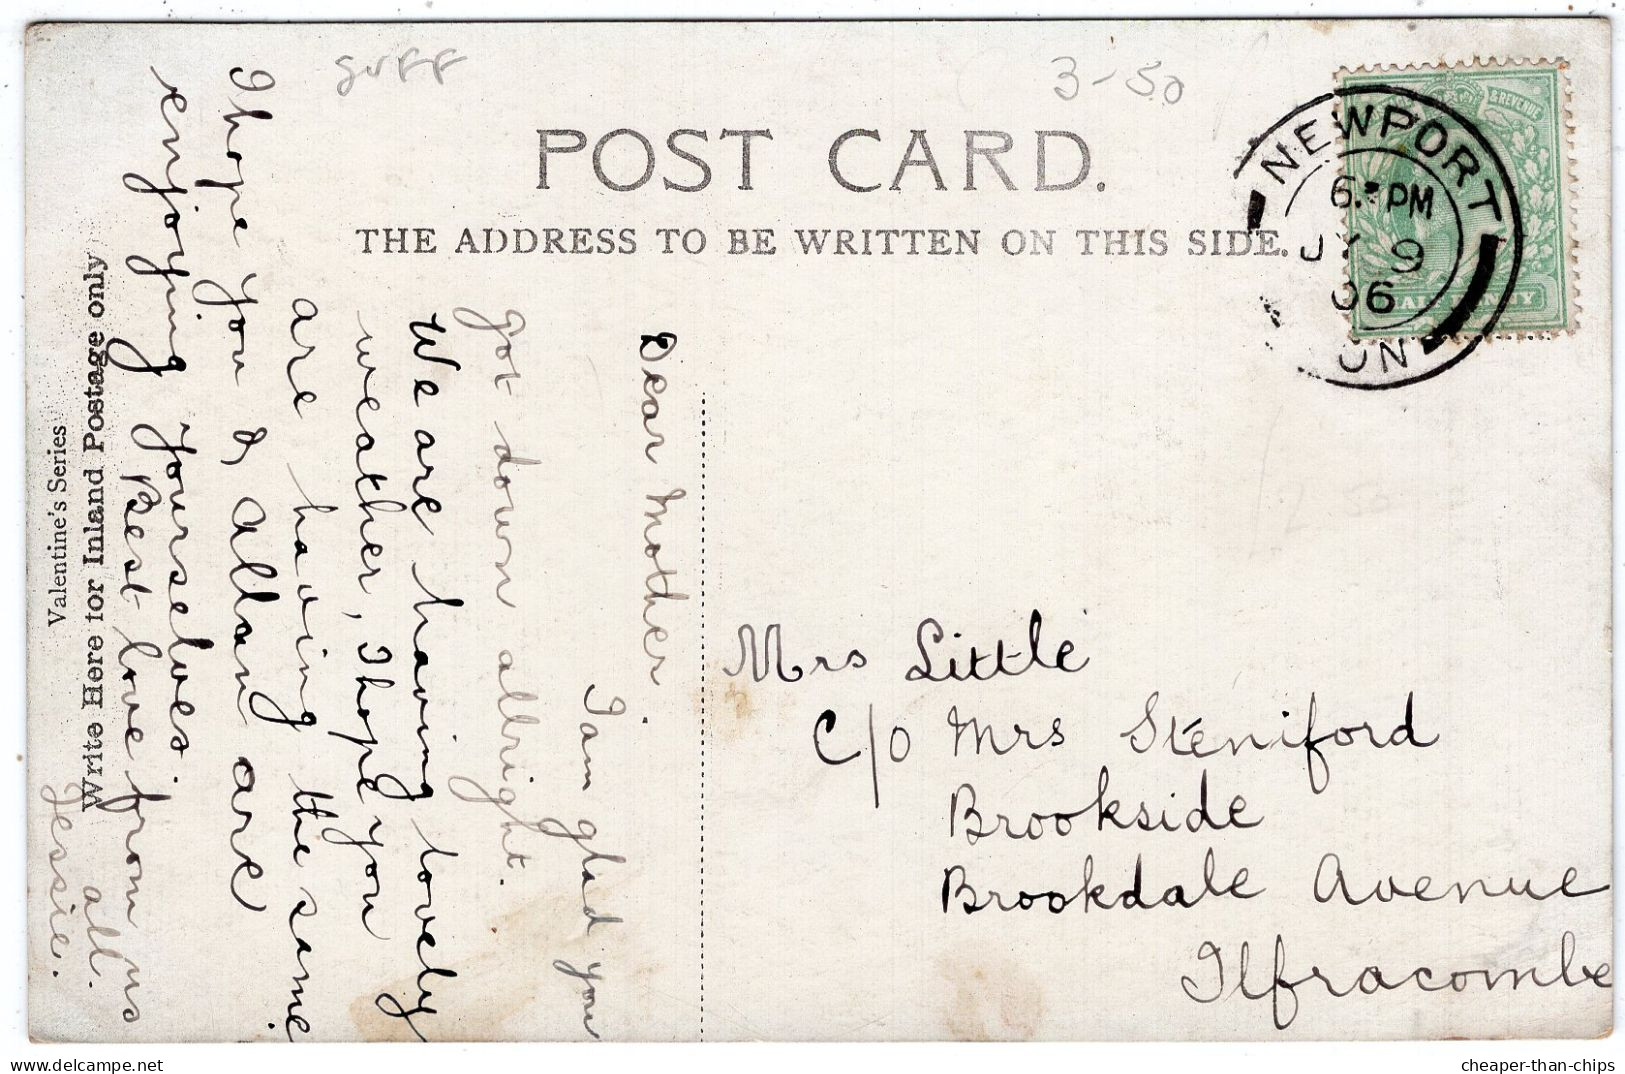 guff
3-50
POST CARD.
THE ADDRESS TO BE WRITTEN ON THIS SIDE.
& REVENUE
NEWPORT
PM
JY 9
06
ON
Valentine's Series
Write Here for Inland Postage only
Dear Mother.
I am glad you
got down allright.
We are having lovely
weather, I hope you
are having the same.
I hope you & Allan are
enjoying yourselves.
Best love from us
all.
Jessie.
Mrs Little
C/O Mrs Steniford
Brookside
Brookdale Avenue
Ilfracombe
Delcampe.net
cheaper-than-chips